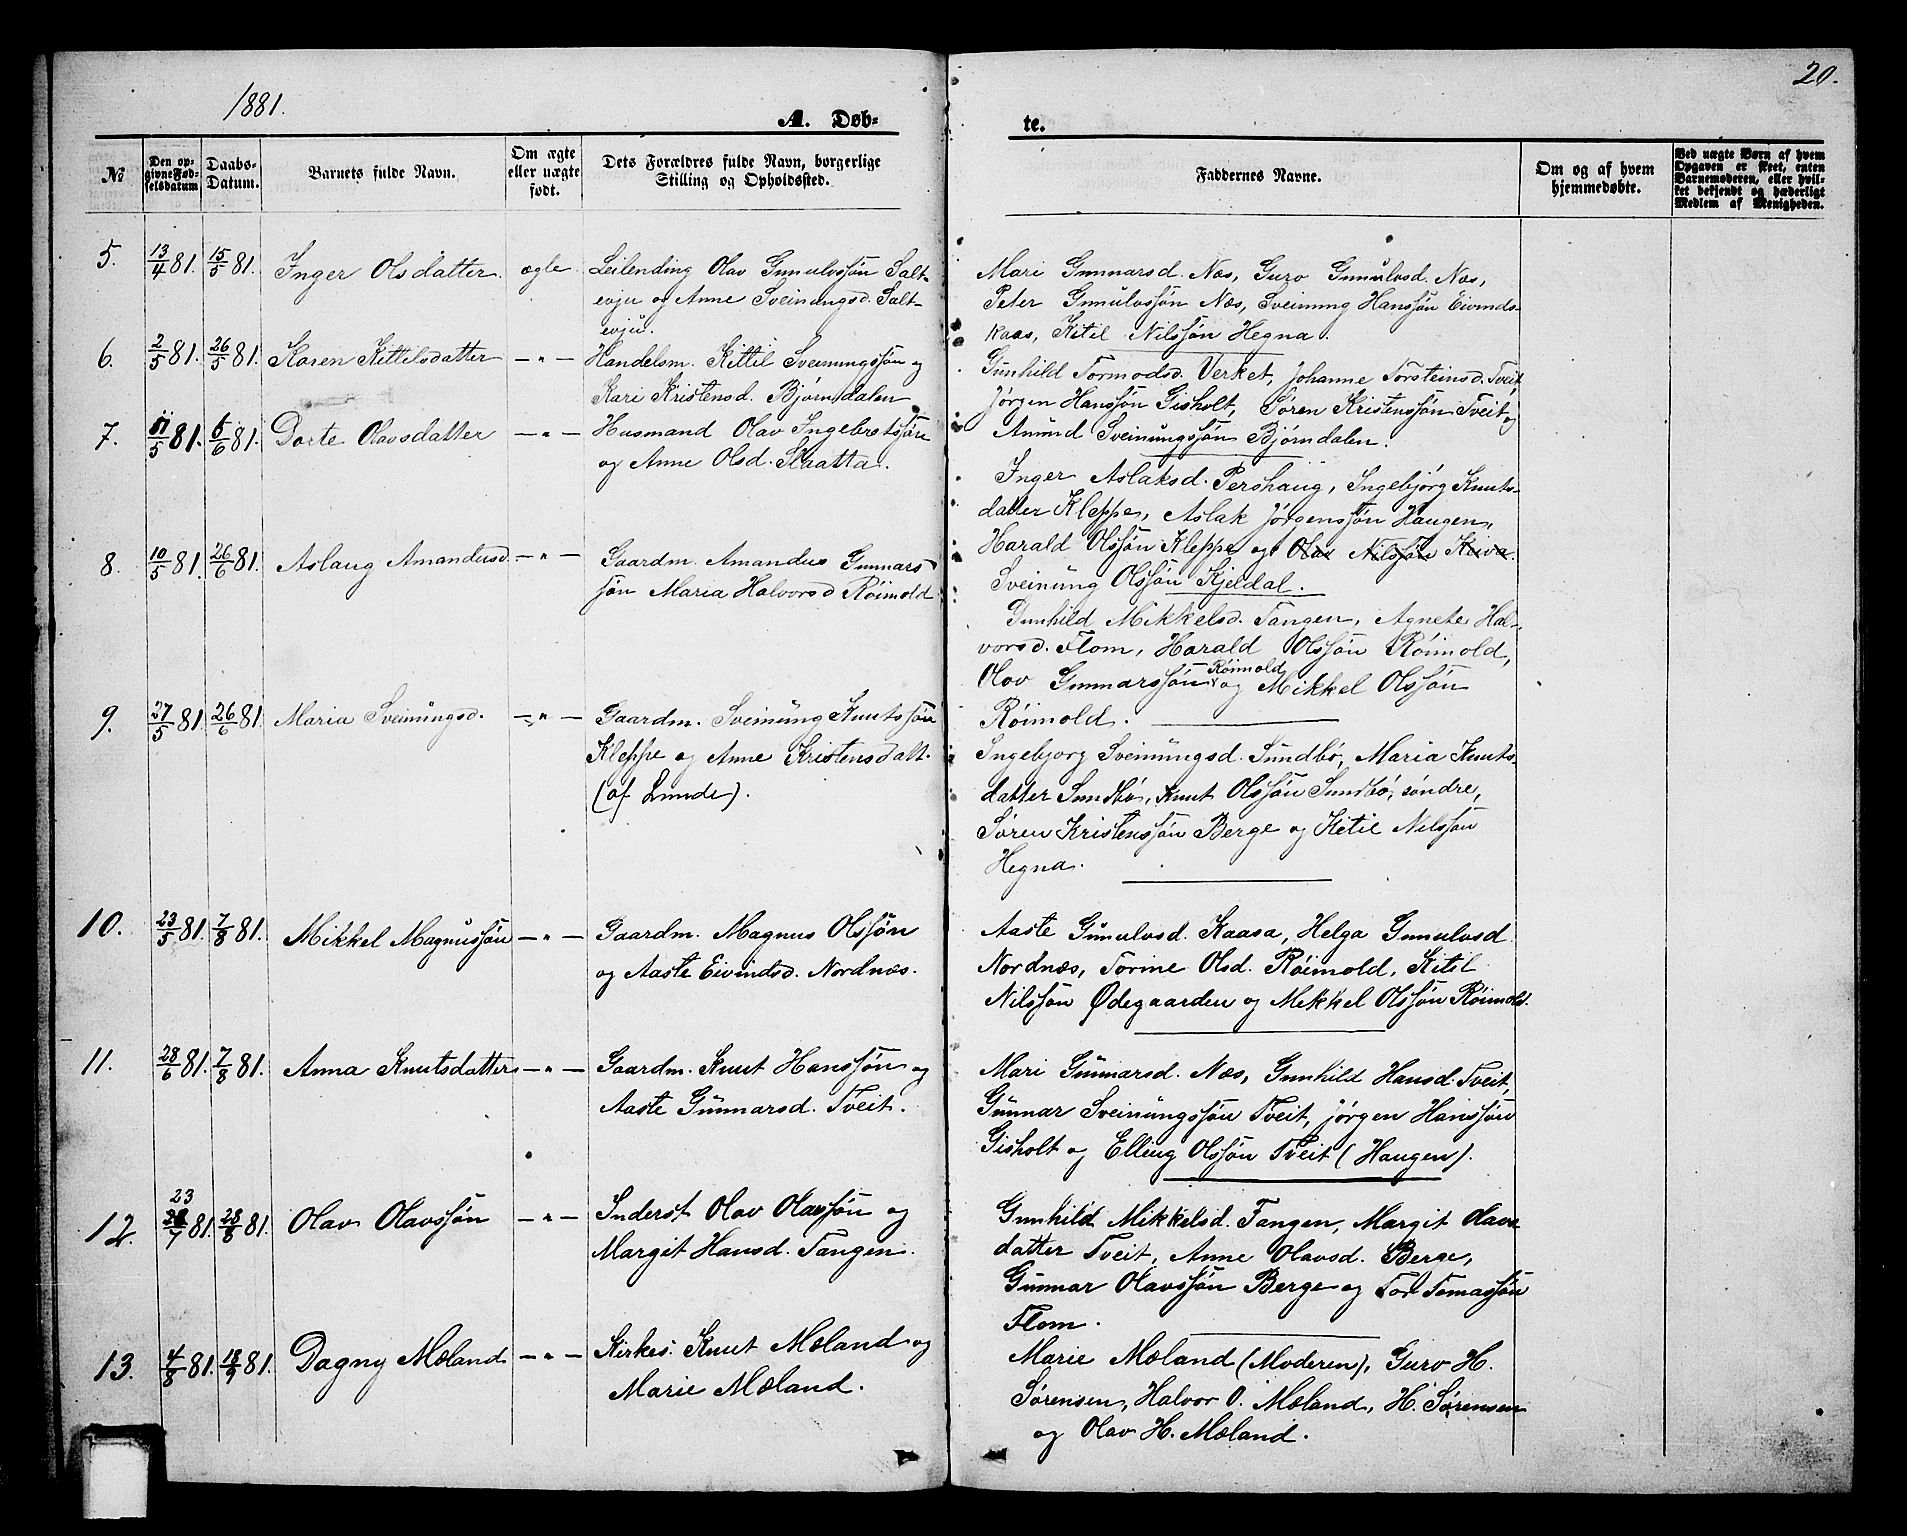 1881.
20.
A. Døb-
te.
No
Den op-
givne Fød-
selsdatum
Daabs-
Datum.
Barnets fulde Navn.
Om ægte
eller uægte
født.
Dets Forældres fulde Navn, borgerlige
Stilling og Opholdssted.
Faddernes Navne.
Om og af hvem
hjemmedøbte.
Ved uægte Børn af hvem
Opgaven er skeet, enten
Barnemoderen, eller hvil-
ket bekjendt og hæderligt
Medlem af Menigheden.
5. 13/4 81. 15/5 81. Inger Olsdatter. ægte.
Leilending Olav Gunulvssøn Salt-
evju og Anne Sveinungsd. Salt-
evju.
Mari Gunnarsd. Næs, Guro Gunulvsd. Næs,
Peter Gunulvssøn Næs, Sveinung Hanssøn Eivinds-
kaas, Kitil Nilssøn Hegna.
6. 2/5 81. 26/5 81. Karen Kittilsdatter — " —
Handelsm. Kittil Sveinungssøn og
Kari Kristensd. Bjørndalen
Gunhild Tormodsd. Verket, Johanne Torsteinsd. Tveit,
Jørgen Hanssøn Gisholt, Søren Kristenssøn Tveit og
Anund Sveinungssøn Bjørndalen.
7. 11/5 81. 6/6 81. Dorte Olavsdatter — " —
Husmand Olav Ingebretssøn
og Anne Olsd. Slaatta.
Inger Aslaksd. Pershaug, Ingebjørg Knuts-
datter Kleppe, Aslak Jørgenssøn Haugen,
Harald Olssøn Kleppe og Olav Nilssøn
Sveinung Olssøn Kjeldal.
8. 10/5 81. 26/6 81. Aslaug Amandusd. — " —
Gaardm. Amandus Gunnars-
søn Maria Halvorsd Røimold
Gunhild Mikkelsd. Tangen, Agnete Hal-
vorsd. Flom, Harald Olssøn Røimold,
Olav Gunnarssøn Røimold og Mikkel Olssøn
Røimold.
9. 27/5 81. 26/6 81. Maria Sveinungsd. — " —
Gaardm. Sveinung Knutssøn
Kleppe og Anne Kristensdatt.
(af Lunde).
Ingebjorg Sveinungsd. Sundbø, Maria Knuts-
datter Sundbø, Knut Olssøn Sundbø, søndre,
Søren Kristenssøn Berge og Kitil Nilssøn
Hegna.
10. 23/5 81. 7/8 81. Mikkel Magnussøn — " —
Gaardm. Magnus Olssøn
og Aaste Eivindsd. Nordnæs.
Aaste Gunulvsd. Kaasa, Helga Gunulvsd
Nordnæs, Torine Olsd. Røimold, Kitil
Nilssøn Ødegaarden og Mikkel Olssøn Røimold.
11. 28/6 81. 7/8 81. Anna Knutsdatter — " —
Gaardm. Knut Hanssøn og
Aaste Gunnarsd. Tveit.
Mari Gunnarsd. Næs, Gunhild Hansd. Tveit,
Gunnar Sveinungssøn Tveit, Jørgen Hanssøn
Gisholt og Elling Olssøn Tveit (Haugen).
12. 23/7 81. 28/8 81. Olav Olavssøn — " —
Inderst Olav Olavssøn og
Margit Hansd. Tangen.
Gunhild Mikkelsd. Tangen, Margit Olavs
datter Tveit, Anne Olavsd. Berge,
Gunnar Olavssøn Berge og Tor Tomassøn
Flom.
13. 4/8 81. 18/9 81. Dagny Mæland — " —
Kirkes. Knut Mæland og
Marie Mæland.
Marie Mæland (Moderen), Guro H.
Sørensen, Halvor O. Mæland, H. Sørensen
og Olav H. Mæland.